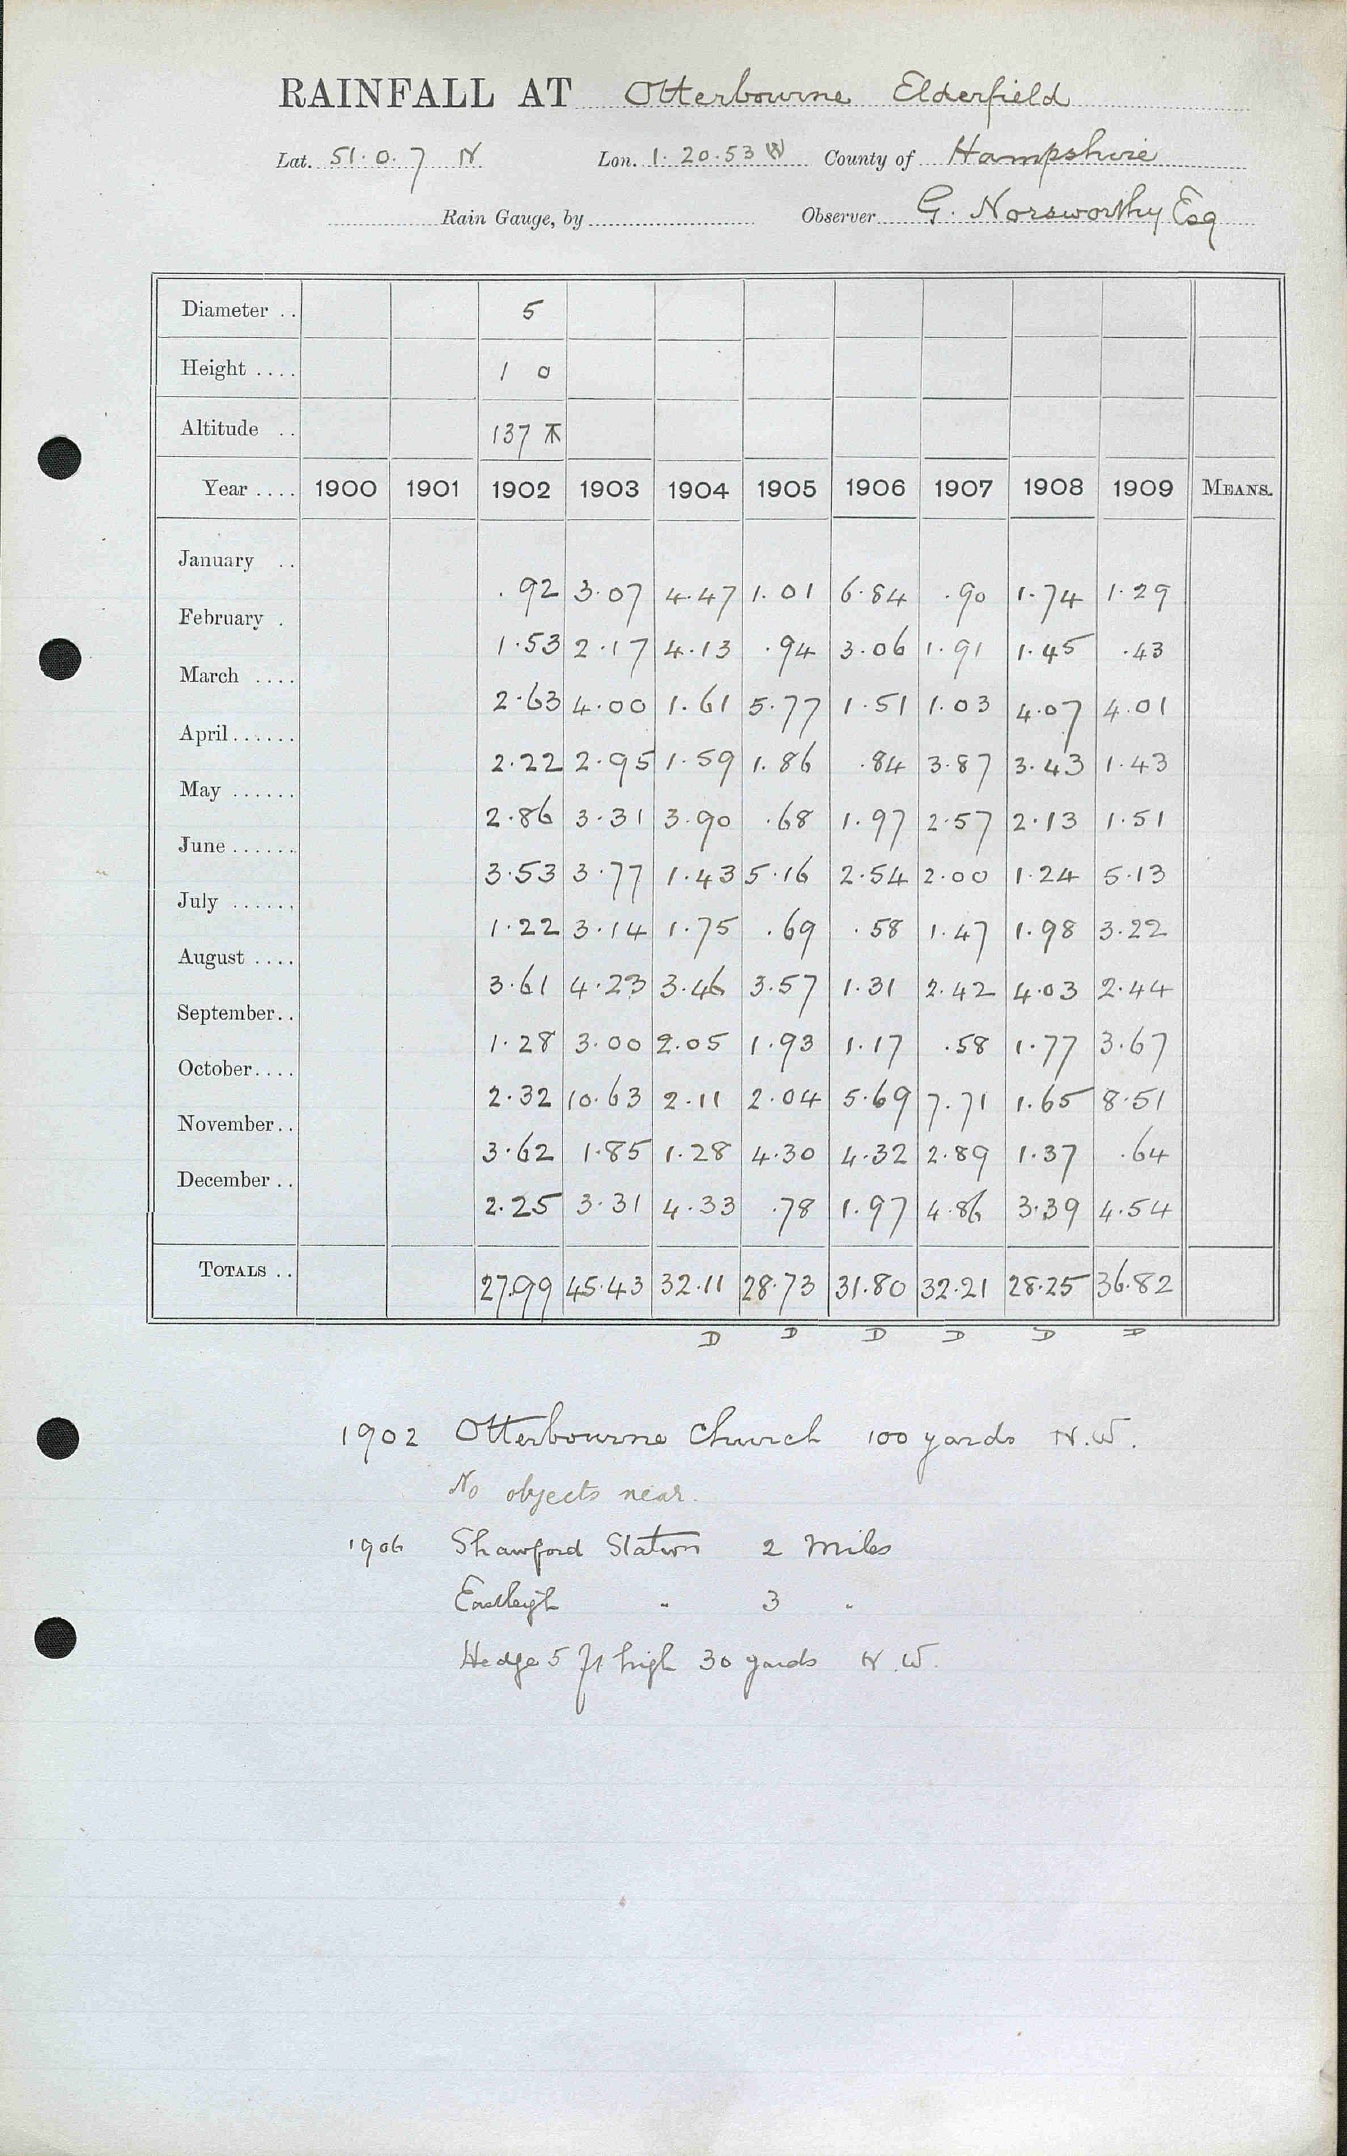 RAINFALL AT Otterbourne Elderfield
Lat. 51.0.7 N Lon. 1.20.53 W County of Hampshire
Rain Gauge, by Observer G. Norsworthy Esq
Diameter .. 5
Height .... 1 0
Altitude .. 137
Year .... 1900 1901 1902 1903 1904 1905 1906 1907 1908 1909 MEANS.
January .. .92 3.07 4.47 1.01 6.84 .90 1.74 1.29
February . 1.53 2.17 4.13 .94 3.06 1.91 1.45 .43
March .... 2.63 4.00 1.61 5.77 1.51 1.03 4.07 4.01
April ...... 2.22 2.95 1.59 1.86 .84 3.87 3.43 1.43
May ...... 2.86 3.31 3.90 .68 1.97 2.57 2.13 1.51
June ...... 3.53 3.77 1.43 5.16 2.54 2.00 1.24 5.13
July ...... 1.22 3.14 1.75 .69 .58 1.47 1.98 3.22
August .... 3.61 4.23 3.46 3.57 1.31 2.42 4.03 2.44
September .. 1.28 3.00 2.05 1.93 1.17 .58 1.77 3.67
October .... 2.32 10.63 2.11 2.04 5.69 7.71 1.65 8.51
November .. 3.62 1.85 1.28 4.30 4.32 2.89 1.37 .64
December .. 2.25 3.31 4.33 .78 1.97 4.86 3.39 4.54
TOTALS .. 27.99 45.43 32.11 28.73 31.80 32.21 28.25 36.82
D D D D D D
1902 Otterbourne Church 100 yards N.W.
No objects near.
1906 Shawford Station 2 Miles
Eastleigh " 3 "
Hedge 5 ft high 30 yards N.W.